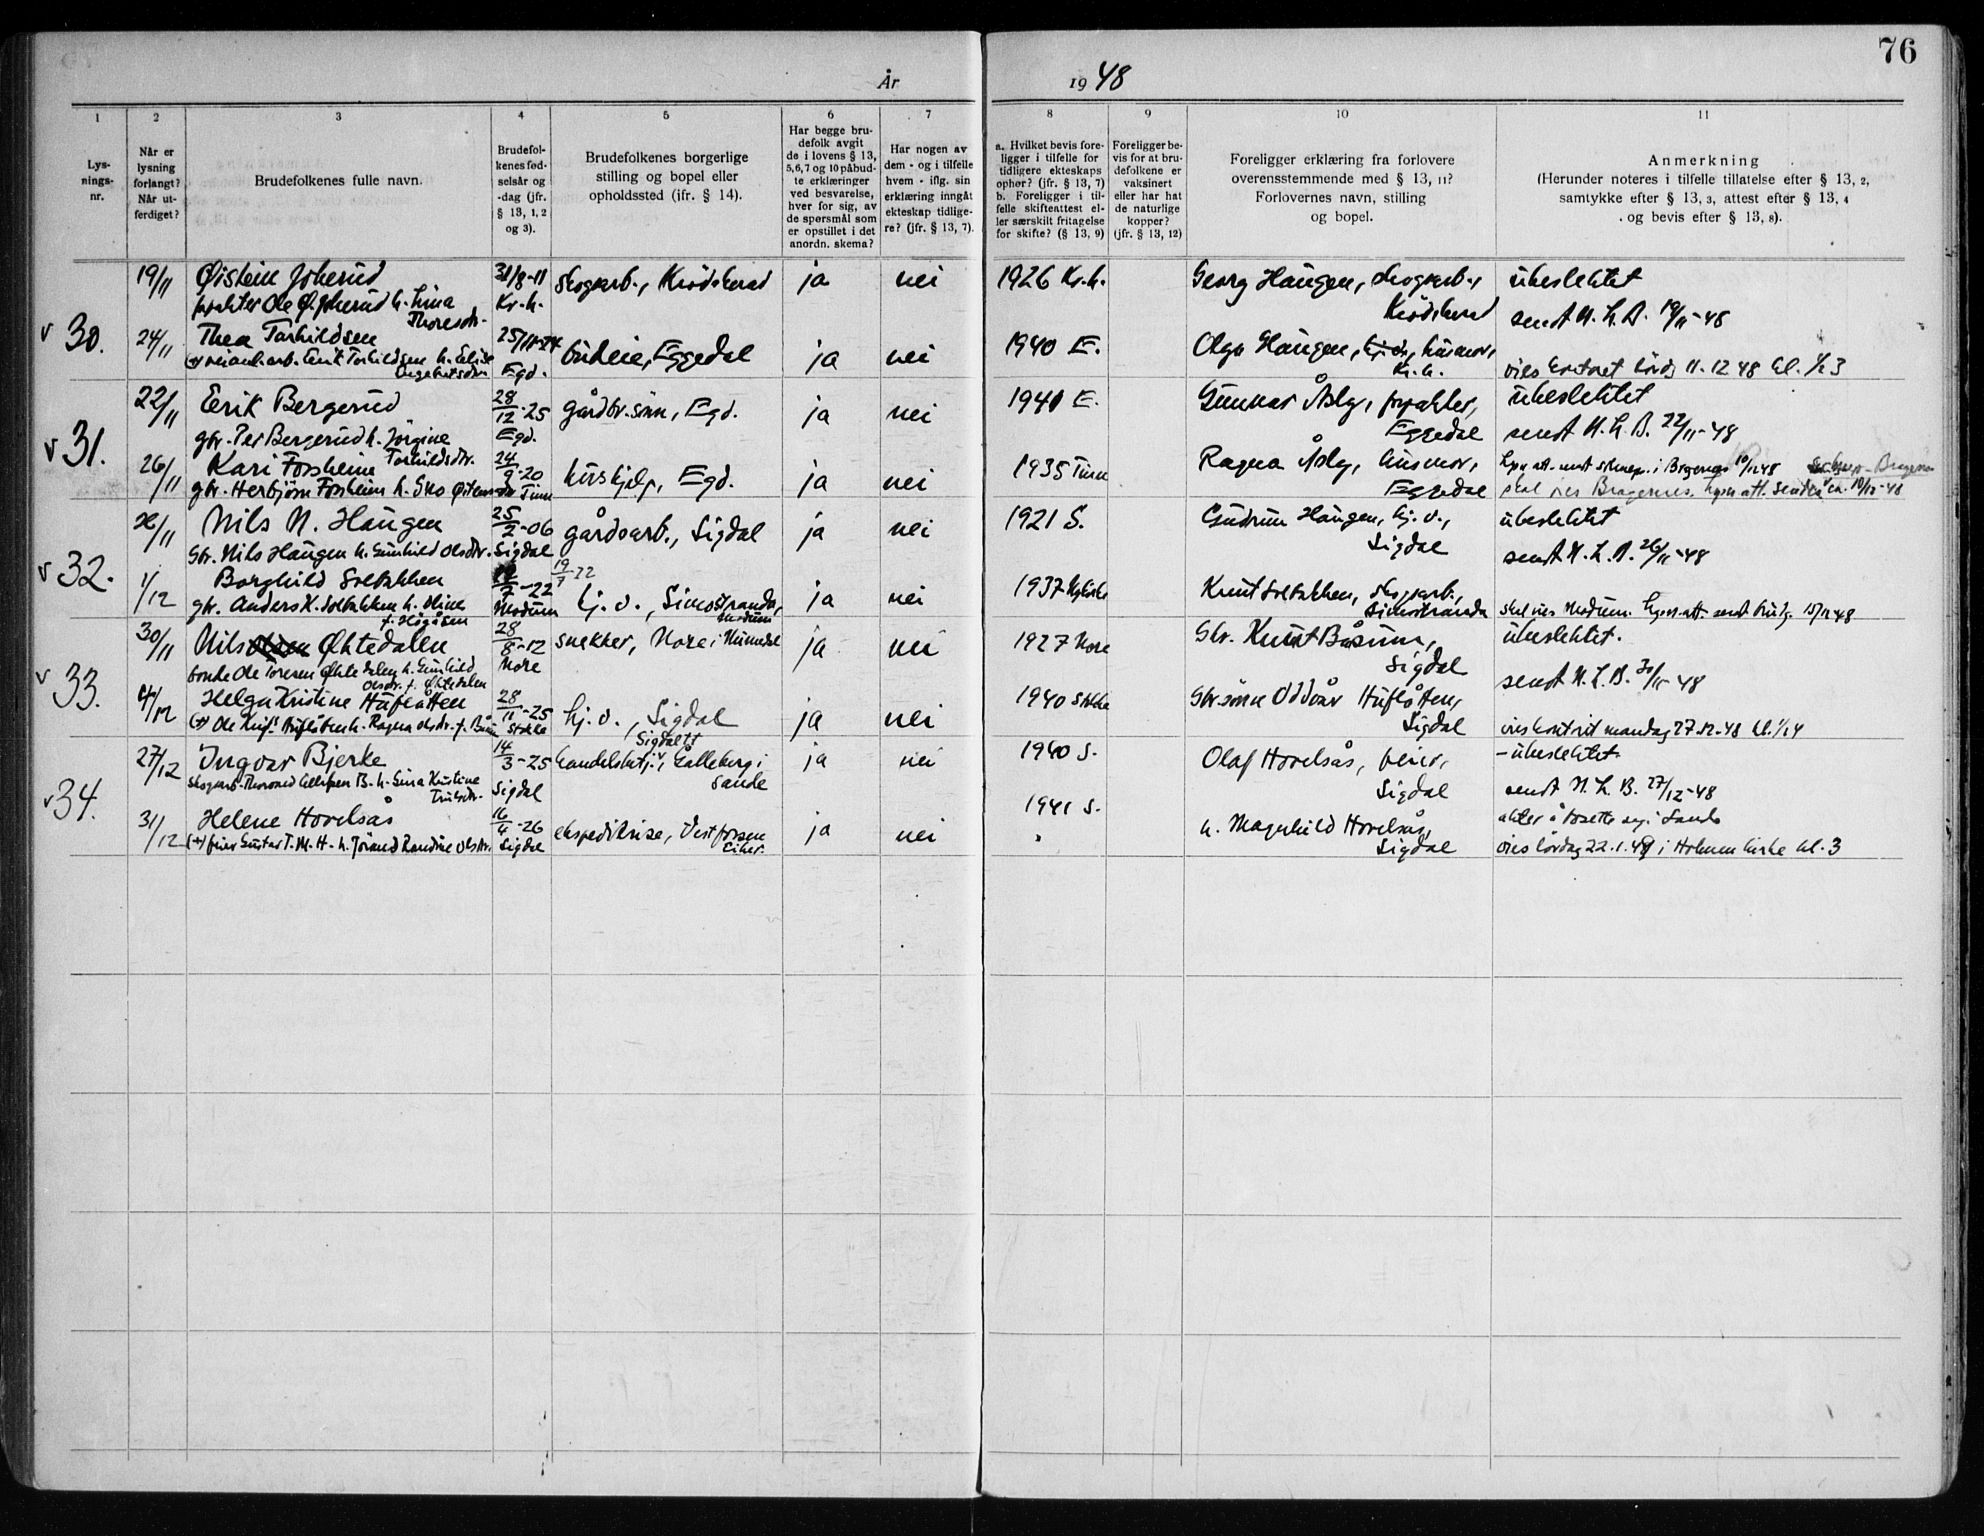 76
År
19 48
1
2
3
4
5
6
7
8
9
10
11
Lys-
nings-
nr.
Når er
lysning
forlangt?
Når ut-
ferdiget?
Brudefolkenes fulle navn.
Brudefol-
kenes fød-
selsår og
-dag (jfr.
§ 13, 1, 2
og 3).
Brudefolkenes borgerlige
stilling og bopel eller
opholdssted (ifr. § 14).
Har begge bru-
defolk avgit
de i lovens § 13,
5,6,7 og 10 påbud-
te erklæringer
ved besvarelse,
hver for sig, av
de spørsmål som
er opstillet i det
anordn. skema?
Har nogen av
dem - og i tilfelle
hvem - iflg. sin
erklæring inngåt
ekteskap tidlige-
re? (jfr. § 13, 7).
a. Hvilket bevis fore-
ligger i tilfelle for
tidligere ekteskaps
ophør? (jfr. § 13, 7)
b. Foreligger i til-
felle skifteattest el-
ler særskilt fritagelse
for skifte? (§ 13, 9)
Foreligger be-
vis for at bru-
defolkene er
vaksinert
eller har hat
de naturlige
kopper?
(jfr. § 13, 12)
Foreligger erklæring fra forlovere
overensstemmende med § 13, 11?
Forlovernes navn, stilling
og bopel.
Anmerkning
(Herunder noteres i tilfelle tillatelse efter § 13, 2,
samtykke efter § 13, 3, attest efter § 13, 4
og bevis efter § 13, 8).
v 30.
19/11 Øistein Joherud 31/8-11 skogarb., Krødsherad ja nei 1926 Kr.h. Georg Haugen, skogarb., ubeslektet
forpakter Ole Ø. Joherud h. Lina Kr.h. Krødsherad sendt N.L.B. 19/11-48
Thoresdr.
24/11 Thea Torhildsen 25/11-24 budeie, Eggedal ja nei 1940 E. Olga Haugen, husmor,
veiarb. Torhildsen h. Egd. Kr.h. vies kontoret lørdag 11.12 48 kl. 1/2 3
v 31.
22/11 Erik Bergerud 28/12-25 gårdbr.sønn, Egd. ja nei 1941 E. Gunnar Åsly, forpakter, ubeslektet
gbr. Per Bergerud h. Jørgine Egd. Eggedal sendt N.L.B. 22/11-48
Torhildsdr.
26/11 Kari Forsheim 24/9-20 hushjelp, Egd. ja nei 1935 Tinn Ragna Åsly, husmor,
gbr. Herbjørn Forsheim h. Tinn Eggedal skal vies Bragernes. Lysn.att. sendes ca. 10/12-48
v 32.
26/11 Nils N. Haugen 25/2-06 gårdsarb., Sigdal ja nei 1921 S. Gudrun Haugen, hj. v., ubeslektet
Gbr. Nils Haugen h. Gunhild Olsdtr. Sigdal Sigdal sendt N.L.B. 26/11-48
1/12 Borghild Solbakken 19/7-22 19/7 22 hj. v., Simostranda, ja nei 1937 Knut Solbakken, skogarb.,
gbr. Anders K. Solbakken h. Oline Modum Modum Simostranda skal vies Modum. Lysn.att. sendt brudg. 15/12 48
f. Høgåsen
v 33.
30/11 Nils Øktedalen 28/8-12 snekker, Nore i Numedal ja nei 1927 Nore Gbr. Knut Båsum, ubeslektet.
bonde Ole Toresen Øktedalen h. Gunhild Nore Sigdal sendt N.L.B. 30/11-48
Olsdr. f. Øktedalen
4/12 Helga Kristine Hufløtten 28/11-25 hj. v., Sigdal ja nei 1940 Stokke Gbr.sønn Oddvar Hufløtten,
Stokke Sigdal vies kontoret mandag 27.12.48 kl. 1/2 4
v 34.
27/12 Ingvar Bjerke 14/3-25 handelsbetj., Galleberg i ja nei 1940 S. Olaf Hovelsås, feier, - ubeslektet.
Sigdal Sande Sigdal sendt N.L.B. 27/12-48
akter å bosette seg i Sande
31/12 Helene Hovelsås 16/4-26 ekspeditrise, Vestfossen ja nei 1941 S. h. Magnhild Hovelsås,
Sigdal Eiker. Sigdal vies lørdag 22.1.49 i Holmen kirke kl. 3